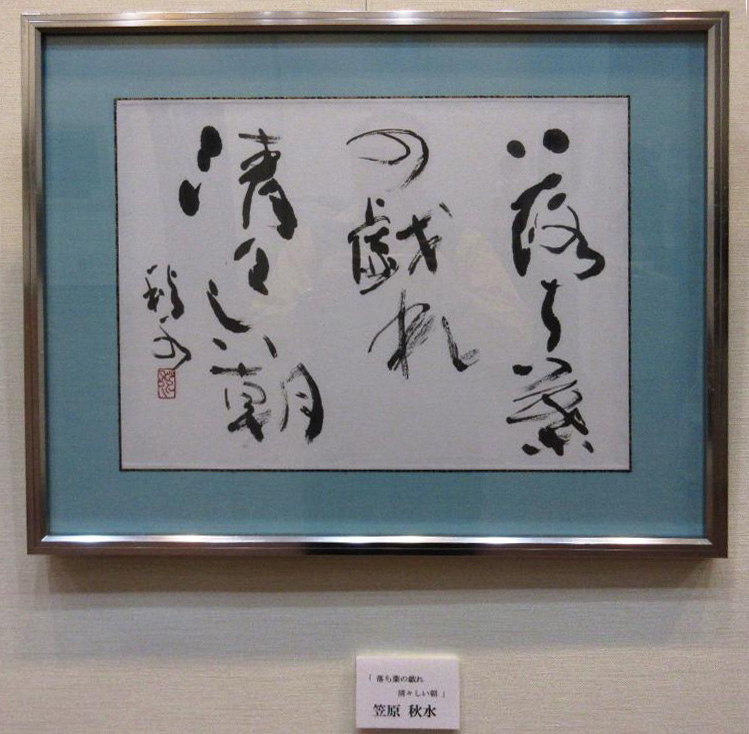 落ち葉
の戯れ
清々しい朝
秋水
「落ち葉の戯れ
清々しい朝」
笠原 秋水